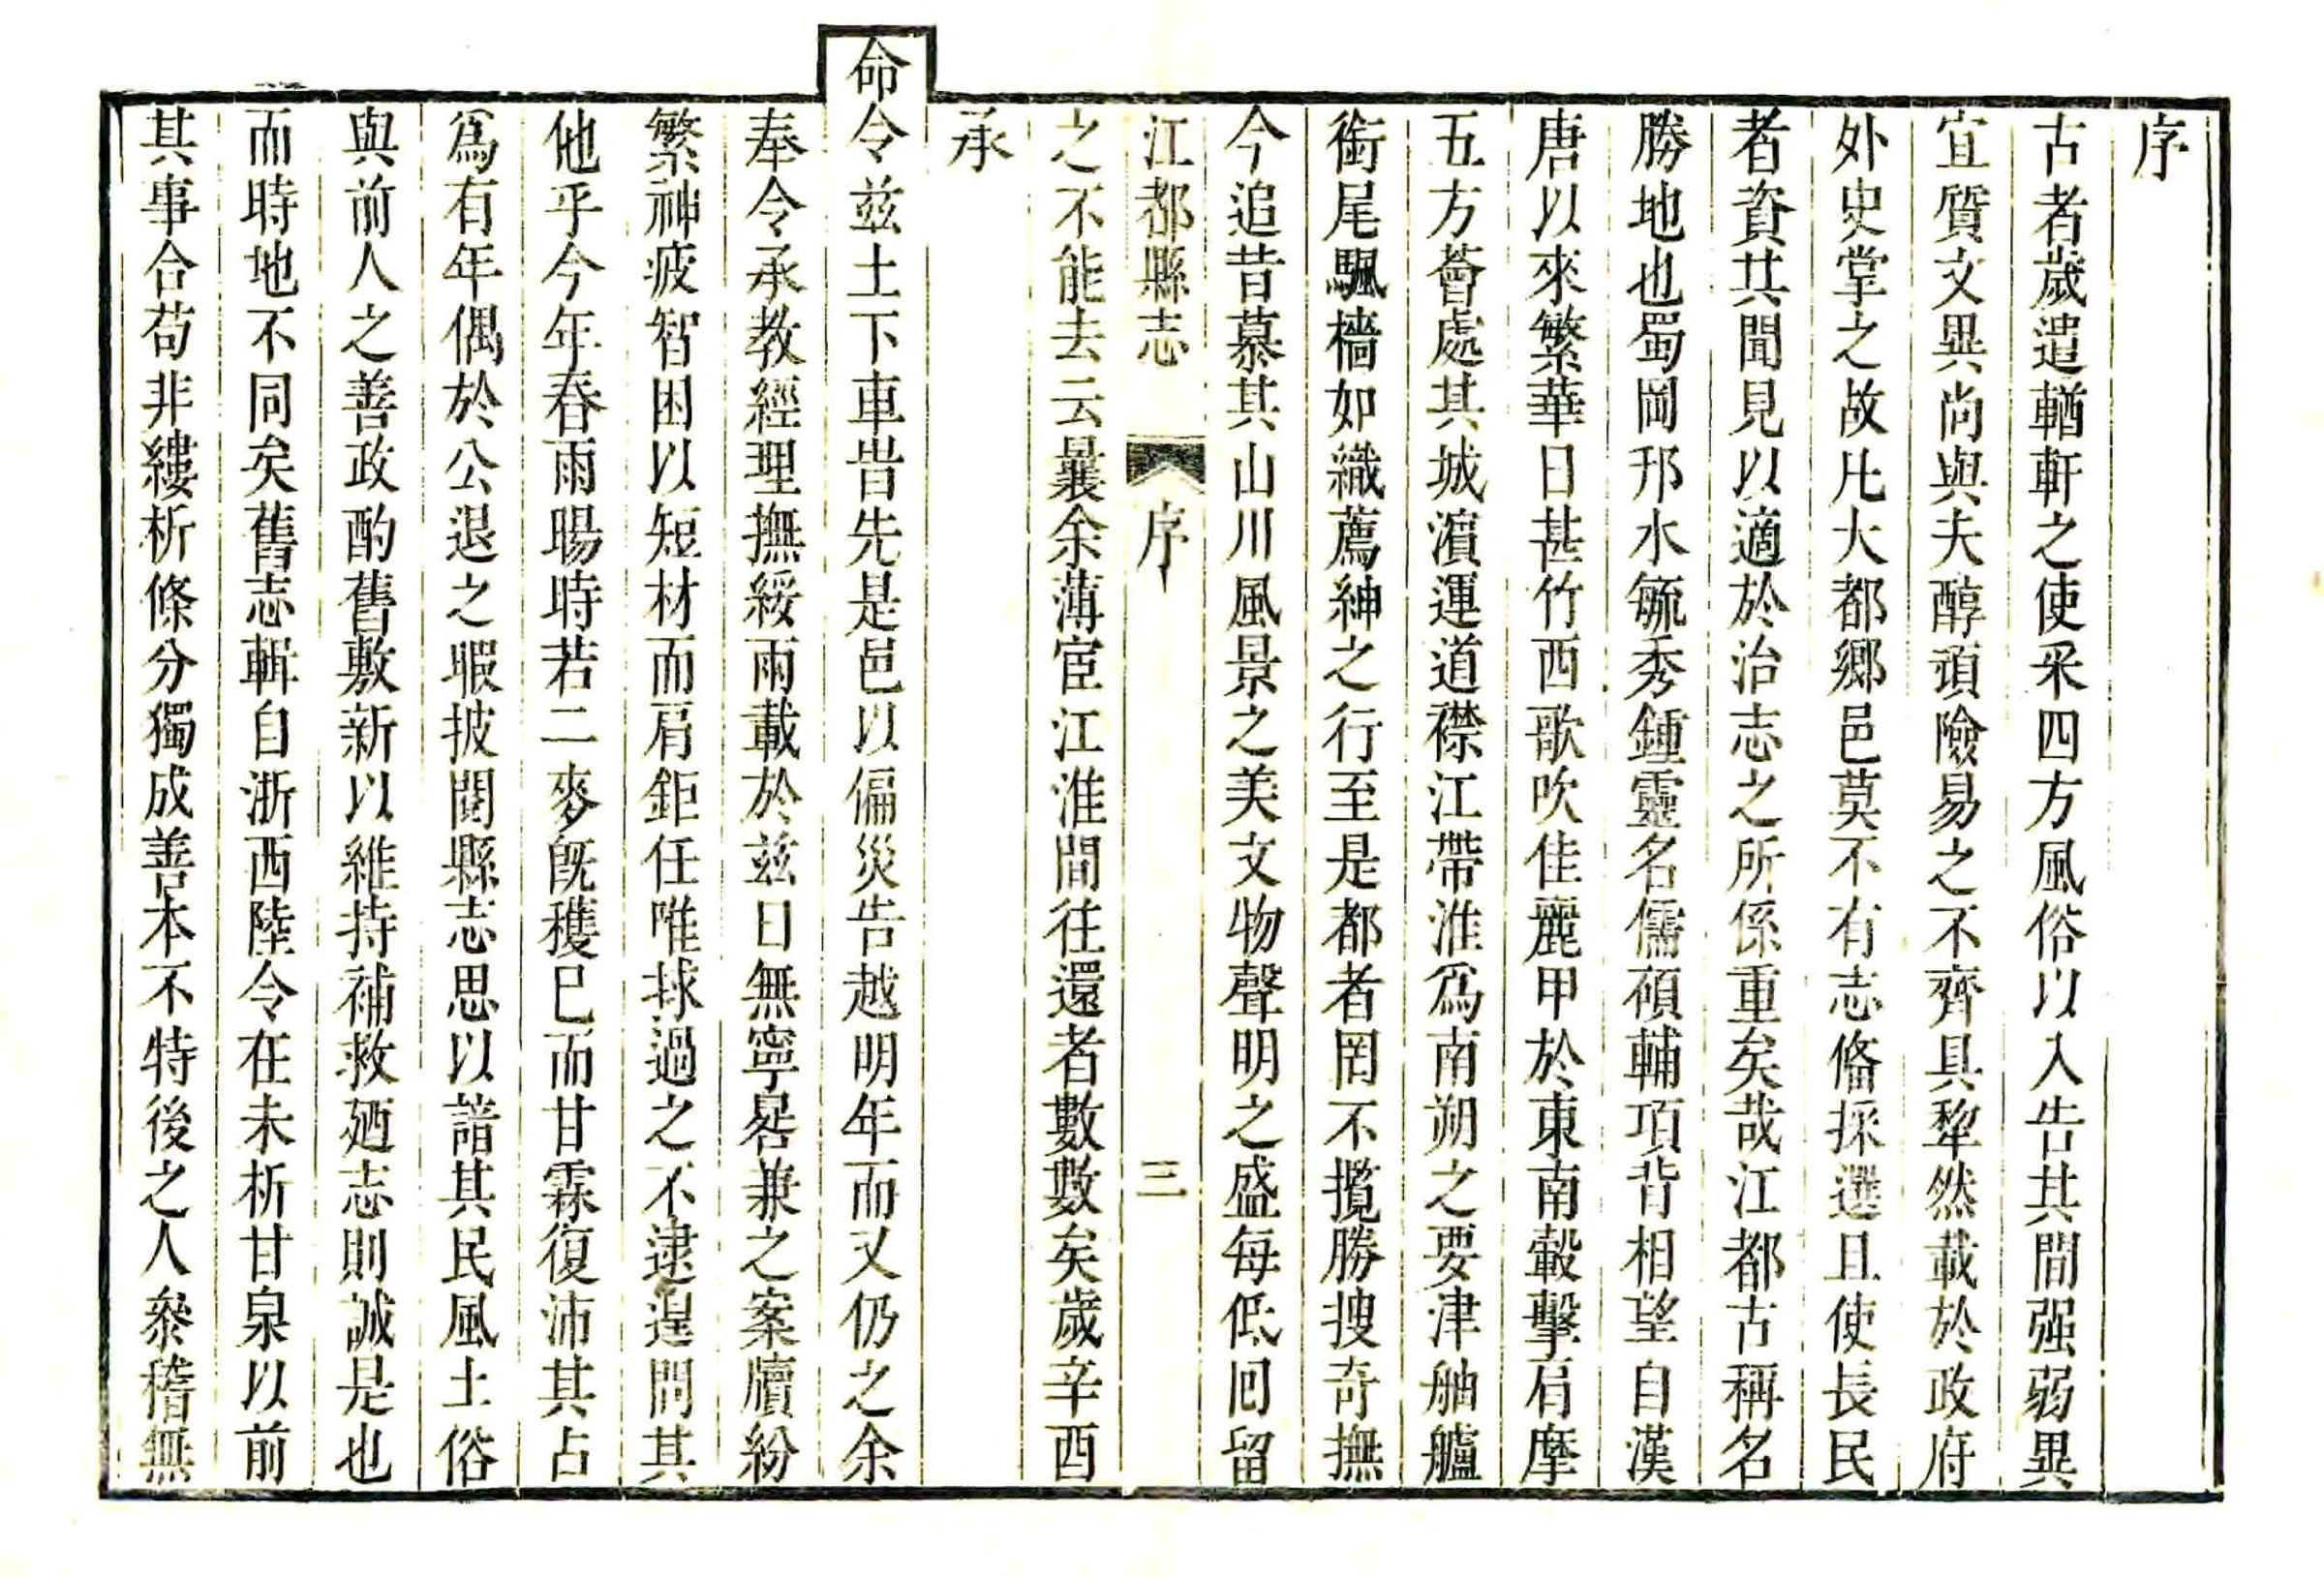 序
古者歲遣輶軒之使采四方風俗以入告其間强弱異
宜質文異尚與夫醇頑險易之不齊具犂然載於政府
外史掌之故凡大都鄉邑莫不有志俻採選且使長民
者資其聞見以適於治志之所係重矣哉江都古稱名
勝地也蜀岡邗水毓秀鍾靈名儒碩輔項背相望自漢
唐以來繁華日甚竹西歌吹佳麗甲於東南轂擊肩摩
五方薈處其城濵運道襟江帶淮爲南朔之要津舳艫
銜尾颿檣如織薦紳之行至是都者罔不攬勝搜奇撫
今追昔慕其山川風景之美文物聲明之盛每低囘留
江都縣志 序 三
之不能去云曩余薄宦江淮間往還者數數矣歲辛酉
承
命令兹土下車旹先是邑以偏災告越明年而又仍之余
奉令承教經理撫綏兩載於兹日無寧晷兼之案牘紛
繁神疲智困以短材而肩鉅任唯捄過之不逮遑問其
他乎今年春雨暘時若二麥旣穫巳而甘霖復沛其占
爲有年偶於公退之暇披閱縣志思以諳其民風土俗
與前人之善政酌舊敷新以維持補救廼志則誠是也
而時地不同矣舊志輯自浙西陸令在未析甘泉以前
其事合苟非縷析條分獨成善本不特後之人叅稽無